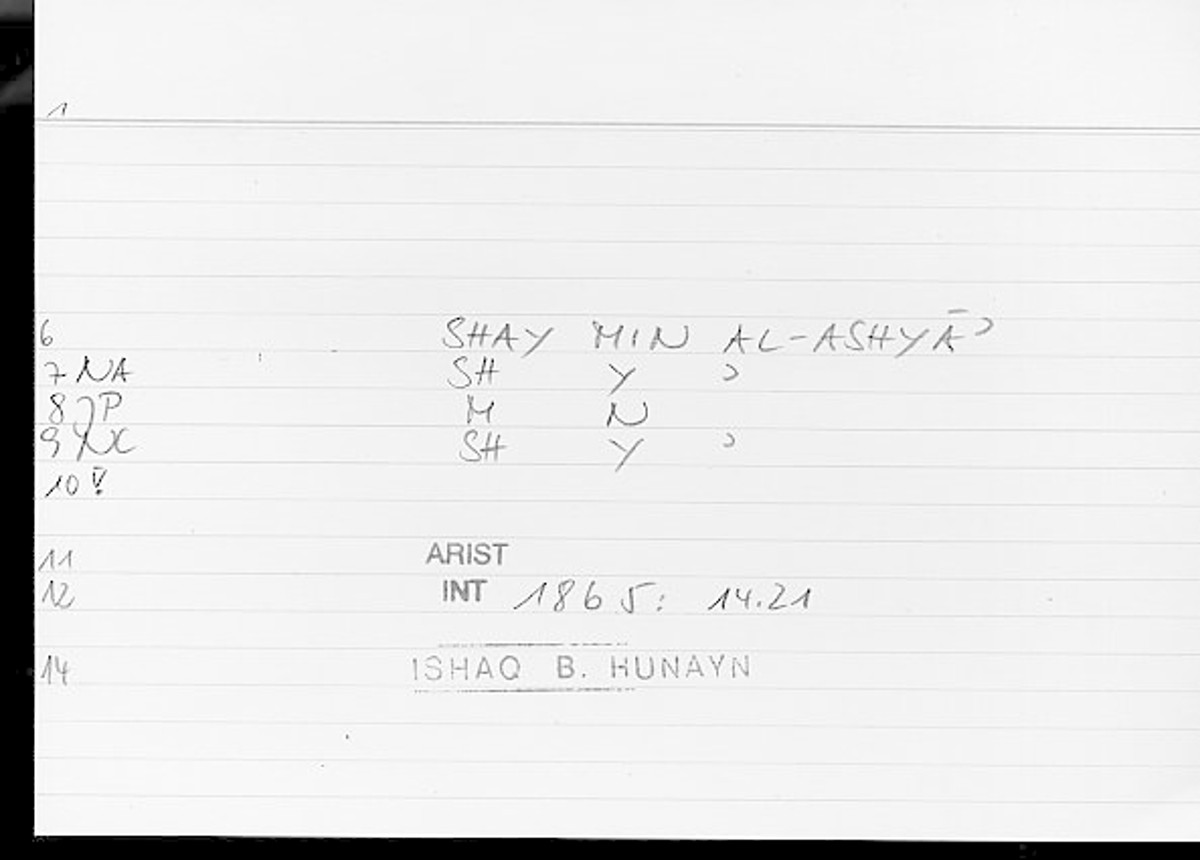 1
6 SHAY MIN AL-ASHYĀʾ
7 NA SH Y ʾ
8 JP M N
9 NC SH Y ʾ
10 V
11 ARIST
12 INT 1865: 14.21
14 ISHAQ B. HUNAYN